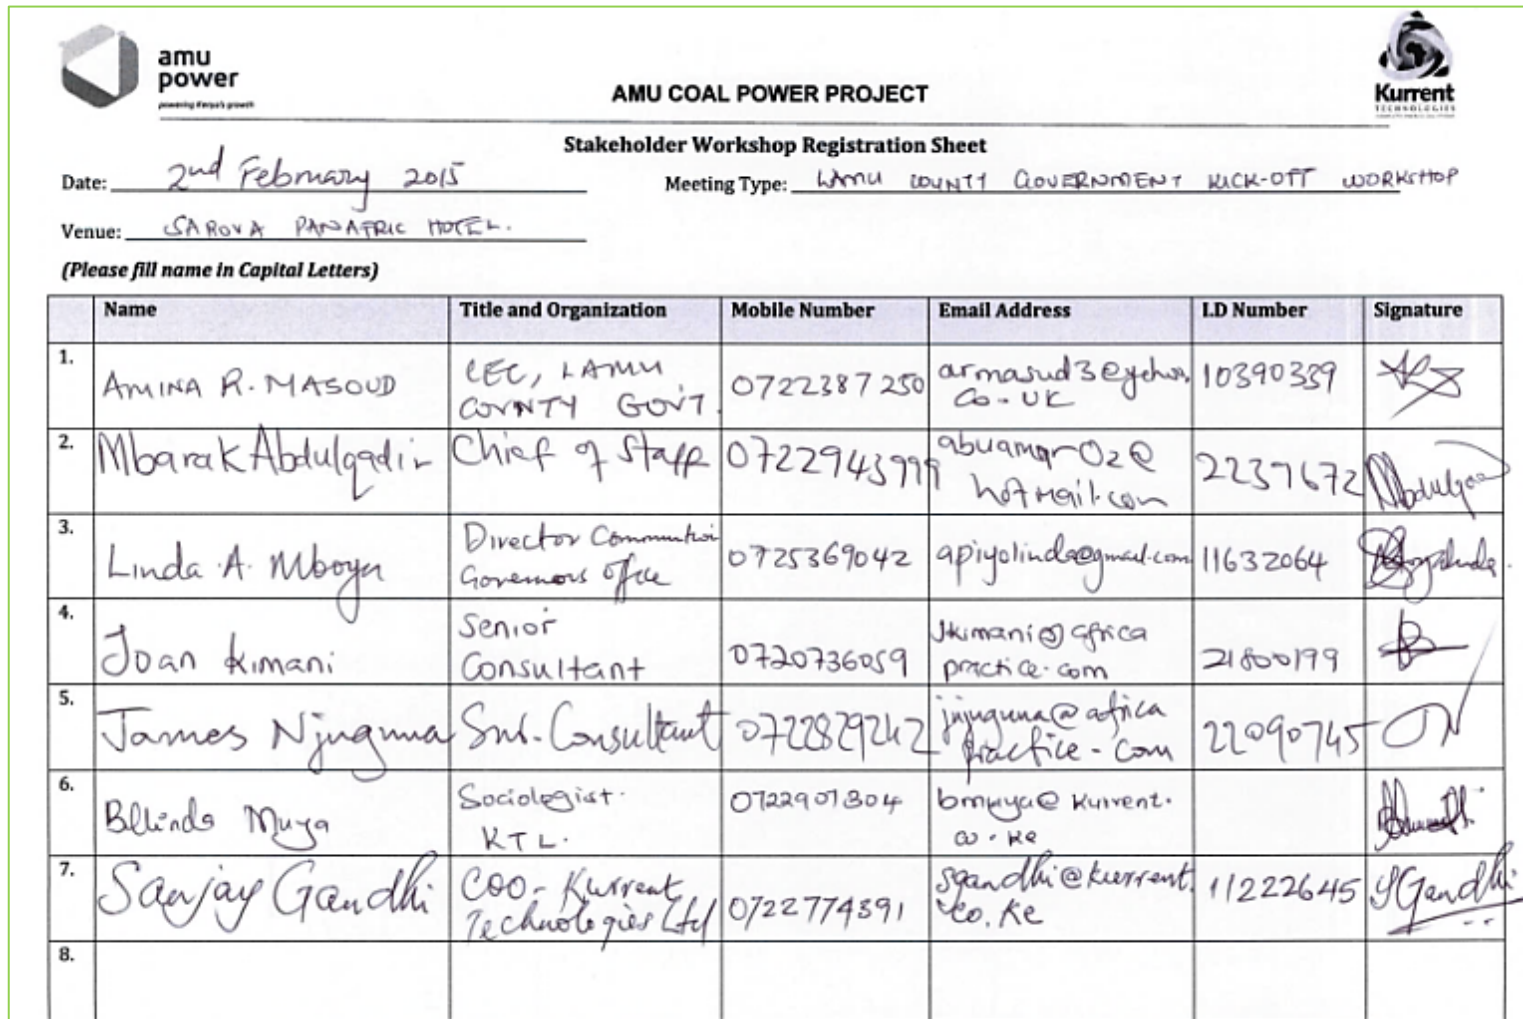 amu
power
powering Kenya's growth
Kurrent
TECHNOLOGIES
AMU COAL POWER PROJECT
Stakeholder Workshop Registration Sheet
Date: 2nd February 2015 Meeting Type: LAMU COUNTY GOVERNMENT KICK-OFF WORKSHOP
Venue: SAROVA PANAFRIC HOTEL.
(Please fill name in Capital Letters)
Name Title and Organization Mobile Number Email Address I.D Number Signature
1. AMINA R. MASOUD CEC, LAMU COUNTY GOVT. 0722387250 armasud3@yahoo. co.uk 10390339
2. Mbarak Abdulqadir Chief of Staff 0722943999 abuamar02@ hotmail.com 22397672
3. Linda A. Mboya Director Communication Governors office 0725369042 apiyolinda@gmail.com 11632064
4. Joan Kimani Senior Consultant 0720736059 Jkimani@africa practice.com 21800199
5. James Njuguna Snr. Consultant 0722829242 jnjuguna@africa practice.com 22090745
6. Belinda Muya Sociologist. KTL. 0722901304 bmuya@kurrent. co.ke
7. Sanjay Gandhi COO- Kurrent Technologies Ltd 0722774391 sgandhi@kurrent. co.ke 11222645 SGandhi
8.